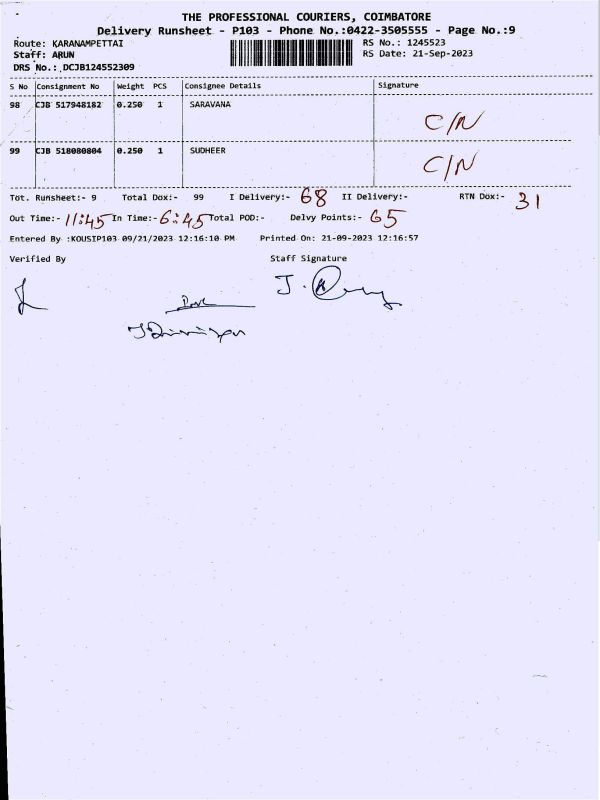 THE PROFESSIONAL COURIERS, COIMBATORE
Delivery Runsheet - P103 - Phone No.:0422-3505555 - Page No.:9
Route: KARANAMPETTAI RS No.: 1245523
Staff: ARUN RS Date: 21-Sep-2023
DRS No.: DCJB124552309
S No Consignment No Weight PCS Consignee Details Signature
98 CJB 517948182 0.250 1 SARAVANA C/N
99 CJB 518080804 0.250 1 SUDHEER C/N
Tot. Runsheet:- 9 Total Dox:- 99 I Delivery:- 68 II Delivery:- RTN Dox:- 31
Out Time:- 11:45 In Time:- 6:45 Total POD:- Delvy Points:- 65
Entered By :KOUSIP103 09/21/2023 12:16:10 PM Printed On: 21-09-2023 12:16:57
Verified By Staff Signature